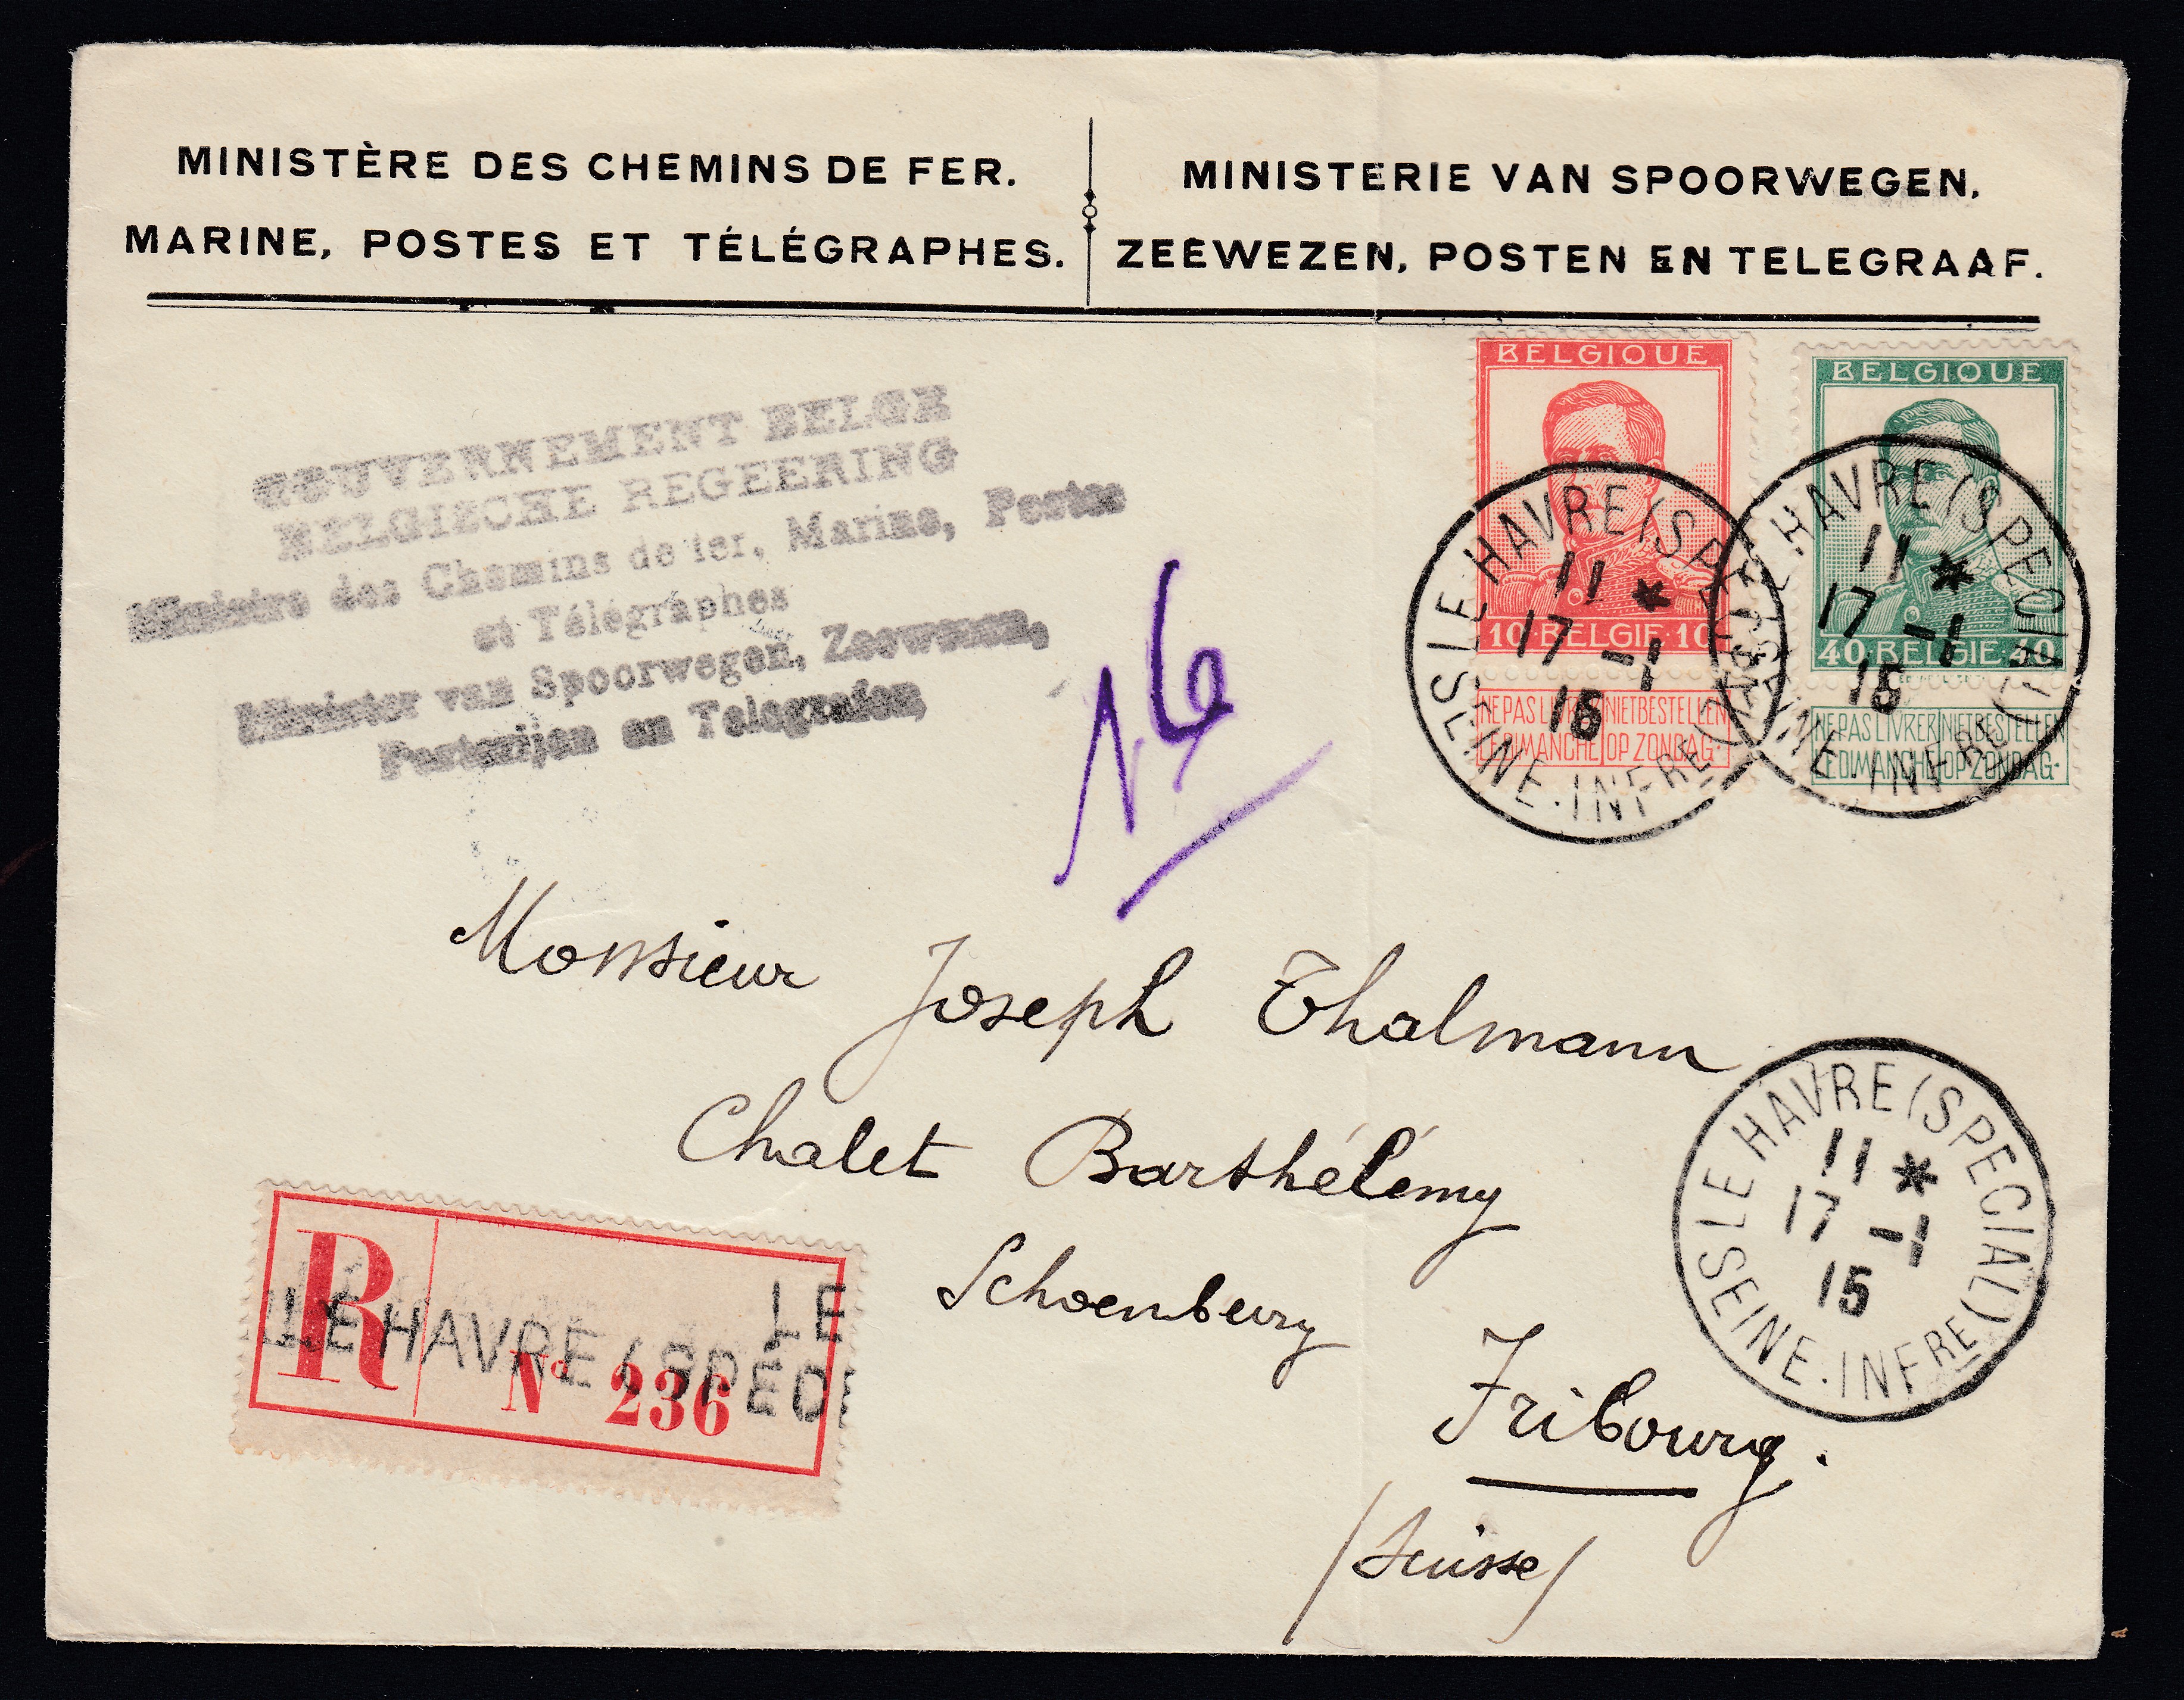 MINISTÈRE DES CHEMINS DE FER.
MARINE, POSTES ET TÉLÉGRAPHES.
MINISTERIE VAN SPOORWEGEN,
ZEEWEZEN, POSTEN EN TELEGRAAF.
GOUVERNEMENT BELGE
BELGISCHE REGEERING
Ministre des Chemins de fer, Marine, Postes
et Télégraphes
Minister van Spoorwegen, Zeewezen,
Posterijen en Telegrafen
BELGIQUE
10·BELGIE·10
NE PAS LIVRER NIET BESTELLEN
LE DIMANCHE OP ZONDAG·
BELGIQUE
40·BELGIE·40
NE PAS LIVRER NIET BESTELLEN
LE DIMANCHE OP ZONDAG·
LE HAVRE (SPECIAL)
11 *
17 -1
15
SEINE·INFRE
LE HAVRE (SPECIAL)
11 *
17 -1
15
SEINE·INFRE
Monsieur Joseph Thalmann
Chalet Barthélémy
Schoenberg
Fribourg.
/Suisse/
LE HAVRE (SPECIAL)
11 *
17 -1
15
SEINE·INFRE
R
LE
LE HAVRE (SPÉC
N° 236